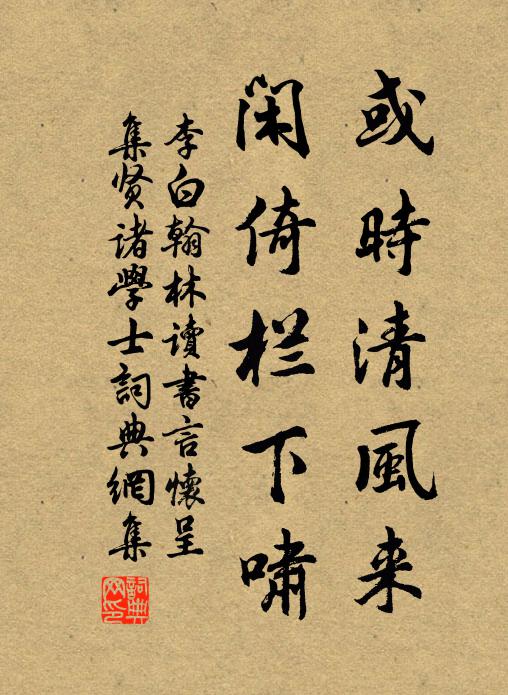 或時清風来
闲倚栏下嘯
李白翰林讀書言懷呈
集贤诸學士詞典網集
詞典网印